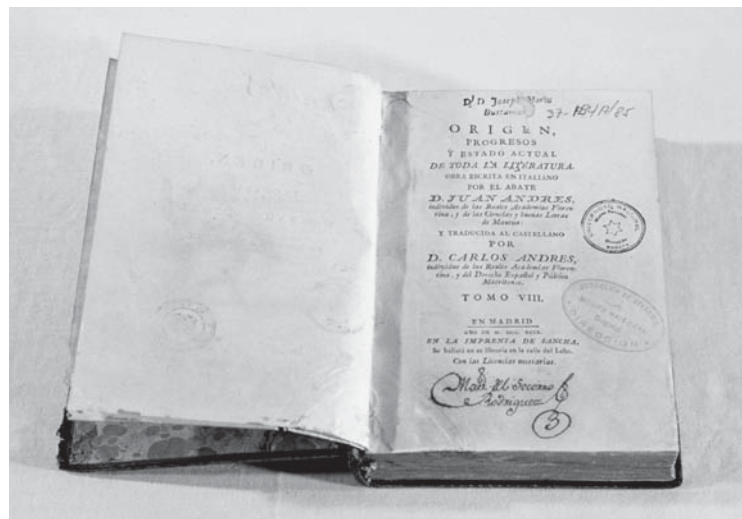 D. D. Joseph Maria
Bustaman
ORIGEN,
PROGRESOS
Y ESTADO ACTUAL
DE TODA LA LITERATURA.
OBRA ESCRITA EN ITALIANO
POR EL ABATE
D. JUAN ANDRES,
individuo de las Reales Academias Floren-
tina, y de las Ciencias y buenas Letras
de Mantua:
Y TRADUCIDA AL CASTELLANO
POR
D. CARLOS ANDRES,
individuo de las Reales Academias Floren-
tina, y del Derecho Español y Público
Matritense.
TOMO VIII.
EN MADRID
EN LA IMPRENTA DE SANCHA.
Se hallará en su librería en la calle del Lobo.
Con las Licencias necesarias.
Man. del Socorro
Rodriguez
DIRECCION